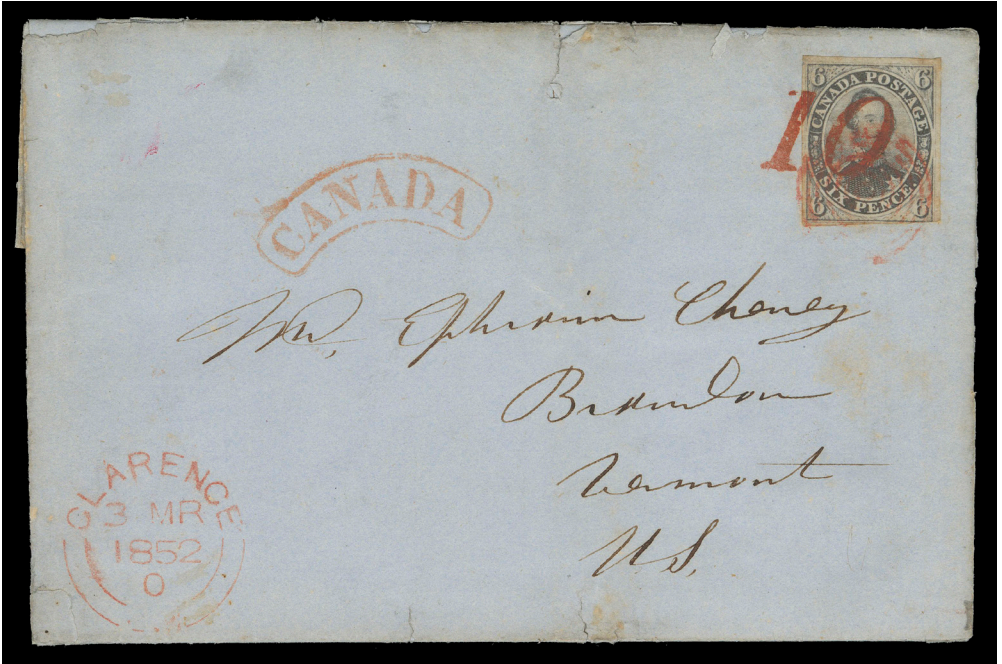 6 6
CANADA POSTAGE
10
SIX PENCE.
6 6
CANADA
Mr. Ephraim Cheney
Brandon
Vermont
U.S.
CLARENCE
3 MR
1852
0